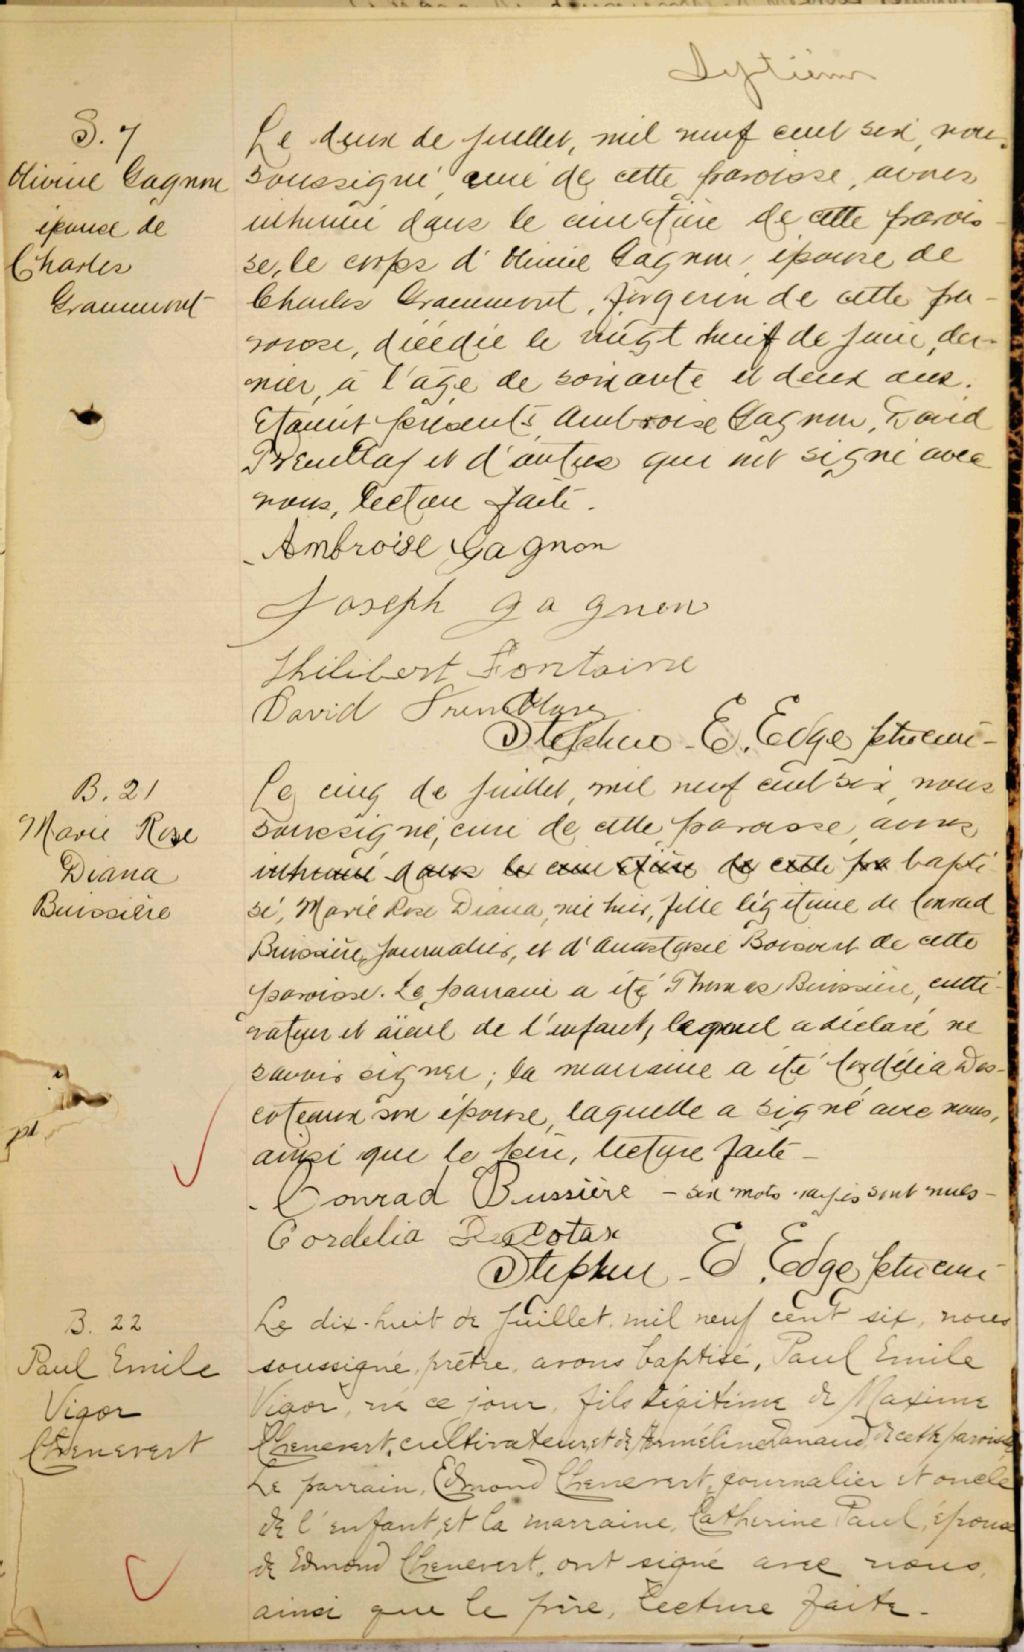 Septième
S. 7
Olivine Gagnon
épouse de
Charles
Grammont
Le deux de juillet, mil neuf cent six, nous,
soussigné, curé de cette paroisse, avons
inhumé dans le cimetière de cette parois-
se, le corps d'Olivine Gagnon, épouse de
Charles Grammont, forgeron de cette pa-
roisse, décédée le vingt neuf de juin, der-
nier, à l'âge de soixante et deux ans.
Etaient présents, Ambroise Gagnon, David
Tremblay et d'autres qui ont signé avec
nous, lecture faite.
Ambroise Gagnon
Joseph Gagnon
Philibert Fontaine
David Tremblay
Stephen E. Edge ptre curé-
B. 21
Marie Rose
Diana
Buissière
Le cinq de juillet, mil neuf cent six, nous
soussigné, curé de cette paroisse, avons
inhumé dans le cimetière de cette pa bapti
sé, Marie Rose Diana, née hier, fille légitime de Conrad
Buissière, journalier, et d'Anastasie Boisvert de cette
paroisse. Le parrain a été Thomas Buissière, culti-
vateur et aïeul de l'enfant, lequel a déclaré ne
savoir signer; la marraine a été Cordélia Des-
coteaux son épouse, laquelle a signé avec nous,
ainsi que le père, lecture faite -
Conrad Bussière - six mots rayés sont nuls -
Cordelia Decotax
Stephen E. Edge ptre curé
B. 22
Paul Emile
Vigor
Chenevert
Le dix-huit de juillet, mil neuf cent six, nous
soussigné, prêtre, avons baptisé, Paul Emile
Vigor, né ce jour, fils légitime de Maxime
Chenevert, cultivateur, et de Armeline Panaud, de cette paroisse
Le parrain, Edmond Chenevert, journalier et oncle
de l'enfant, et la marraine, Catherine Paul, épouse
de Edmond Chenevert, ont signé avec nous,
ainsi que le père, lecture faite.